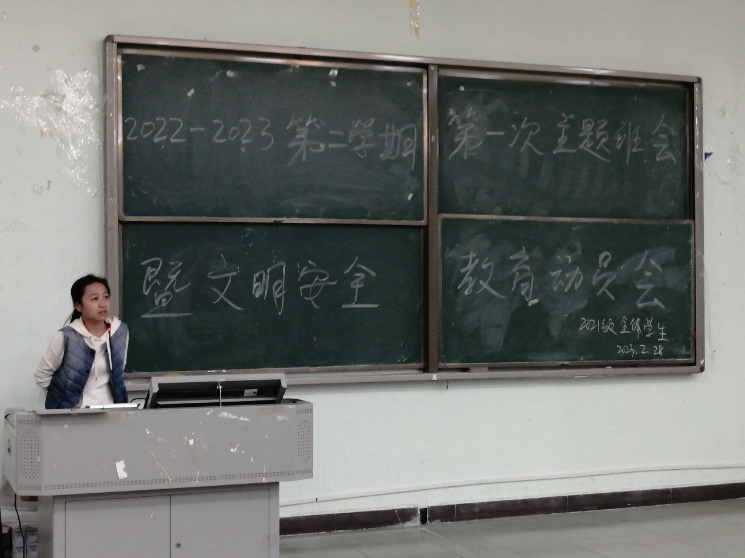 2022-2023第二学期 第一次主题班会
暨文明安全 教育动员会
2021级全体学生
2023.2.28